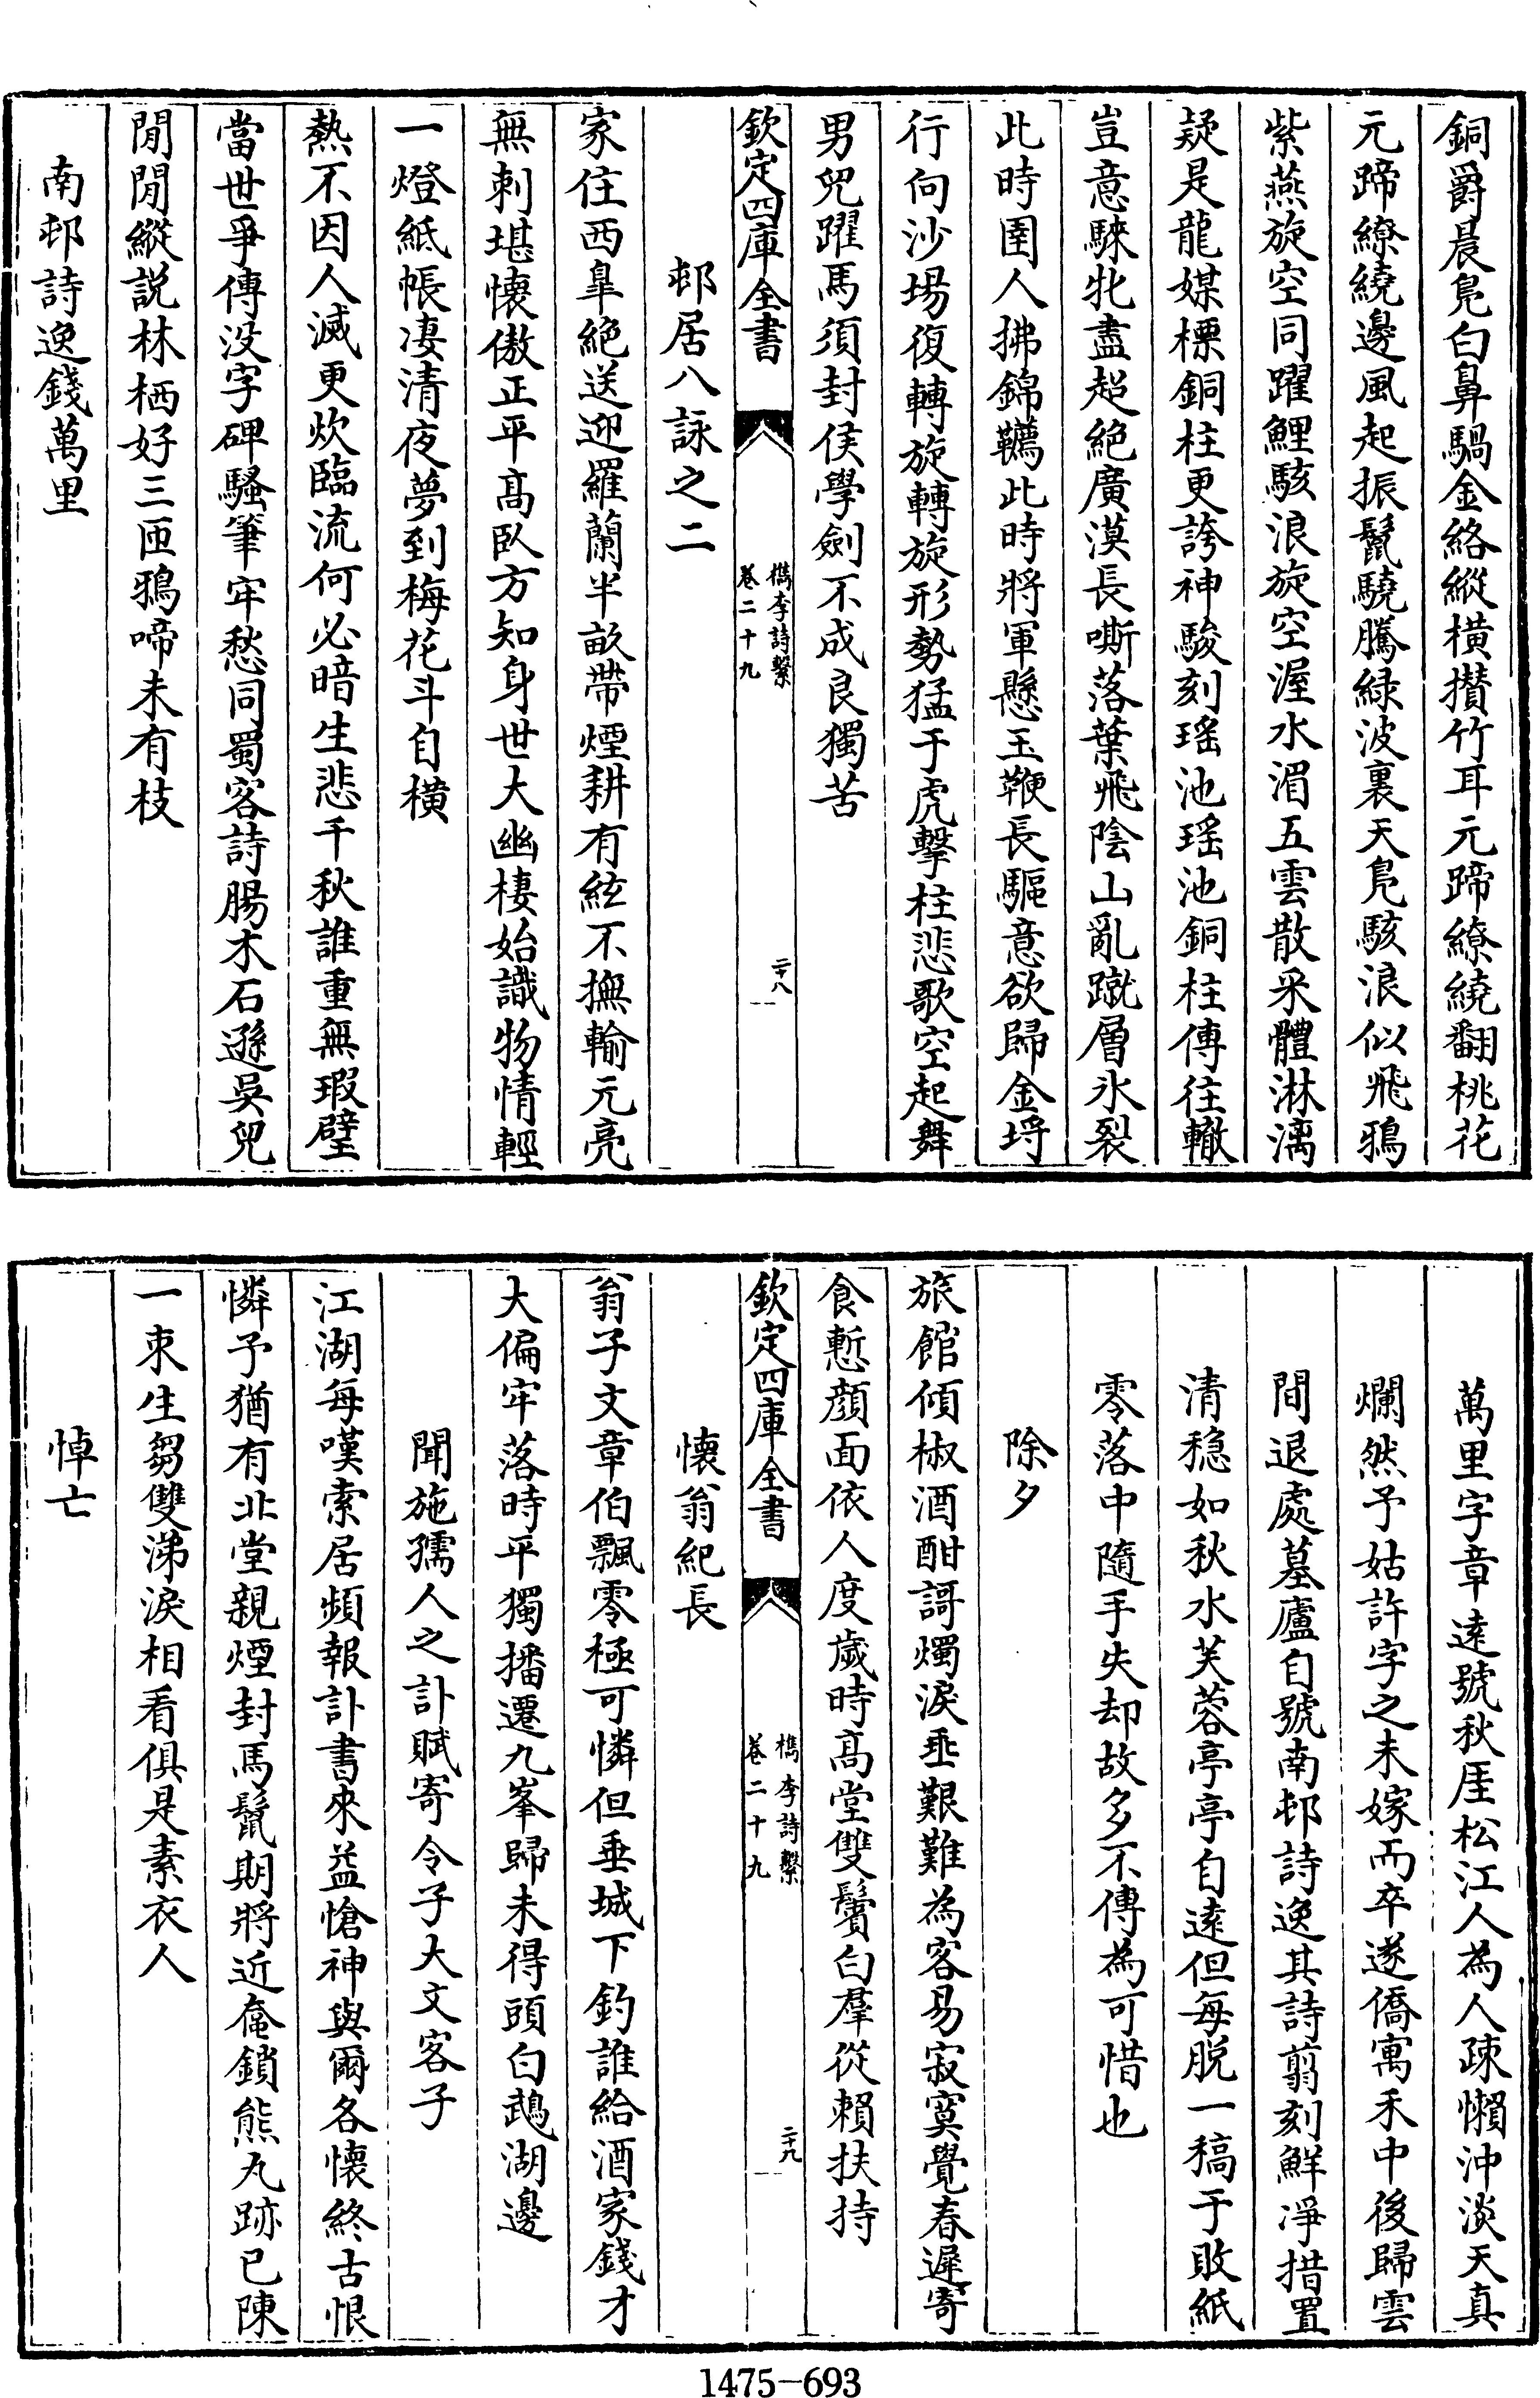 銅爵晨鳧白鼻騧金絡縱橫攢竹耳元蹄繚繞翻桃花
元蹄繚繞邊風起振鬛驍騰緑波裏天鳧駭浪似飛鴉
紫燕旋空同躍鯉駭浪旋空渥水湄五雲散采體淋漓
疑是龍媒標銅柱更誇神駿刻瑶池瑶池銅柱傳往轍
豈意騋牝盡超絶廣漠長嘶落葉飛陰山亂蹴層氷裂
此時圉人拂錦韉此時將軍懸玉鞭長驅意欲歸金埒
行向沙場復轉旋轉旋形勢猛于虎擊柱悲歌空起舞
男兒躍馬須封侯學劍不成良獨苦
欽定四庫全書
檇李詩繫
卷二十九
二十八
邨居八詠之二
家住西臯絶送迎羅蘭半畝帶煙耕有絃不撫輸元亮
無刺堪懷傲正平髙臥方知身世大幽棲始識物情輕
一燈紙帳凄清夜夢到梅花斗自橫
熱不因人滅更炊臨流何必暗生悲千秋誰重無瑕璧
當世爭傳没字碑騷筆牢愁同蜀客詩腸木石遜吳兒
閒閒縱説林栖好三匝鴉啼未有枝
南邨詩逸錢萬里
萬里字章逺號秋厓松江人為人疎懶沖淡天真
爛然予姑許字之未嫁而卒遂僑寓禾中後歸雲
間退處墓廬自號南邨詩逸其詩翦刻鮮凈措置
清穏如秋水芙蓉亭亭自逺但每脱一稿于敗紙
零落中隨手失却故多不傳為可惜也
除夕
旅館傾椒酒酣謌燭淚垂艱難為客易寂寞覺春遲寄
食慙顔面依人度歲時髙堂雙鬢白羣從賴扶持
欽定四庫全書
檇李詩繫
卷二十九
二十九
懷翁紀長
翁子文章伯飄零極可憐但垂城下釣誰給酒家錢才
大偏牢落時平獨播遷九峯歸未得頭白鵡湖邊
聞施孺人之訃賦寄令子大文客子
江湖每嘆索居頻報訃書來益愴神與爾各懷終古恨
憐予猶有北堂親煙封馬鬛期將近奩鎖熊丸跡已陳
一束生芻雙涕淚相看俱是素衣人
悼亡
1475-693